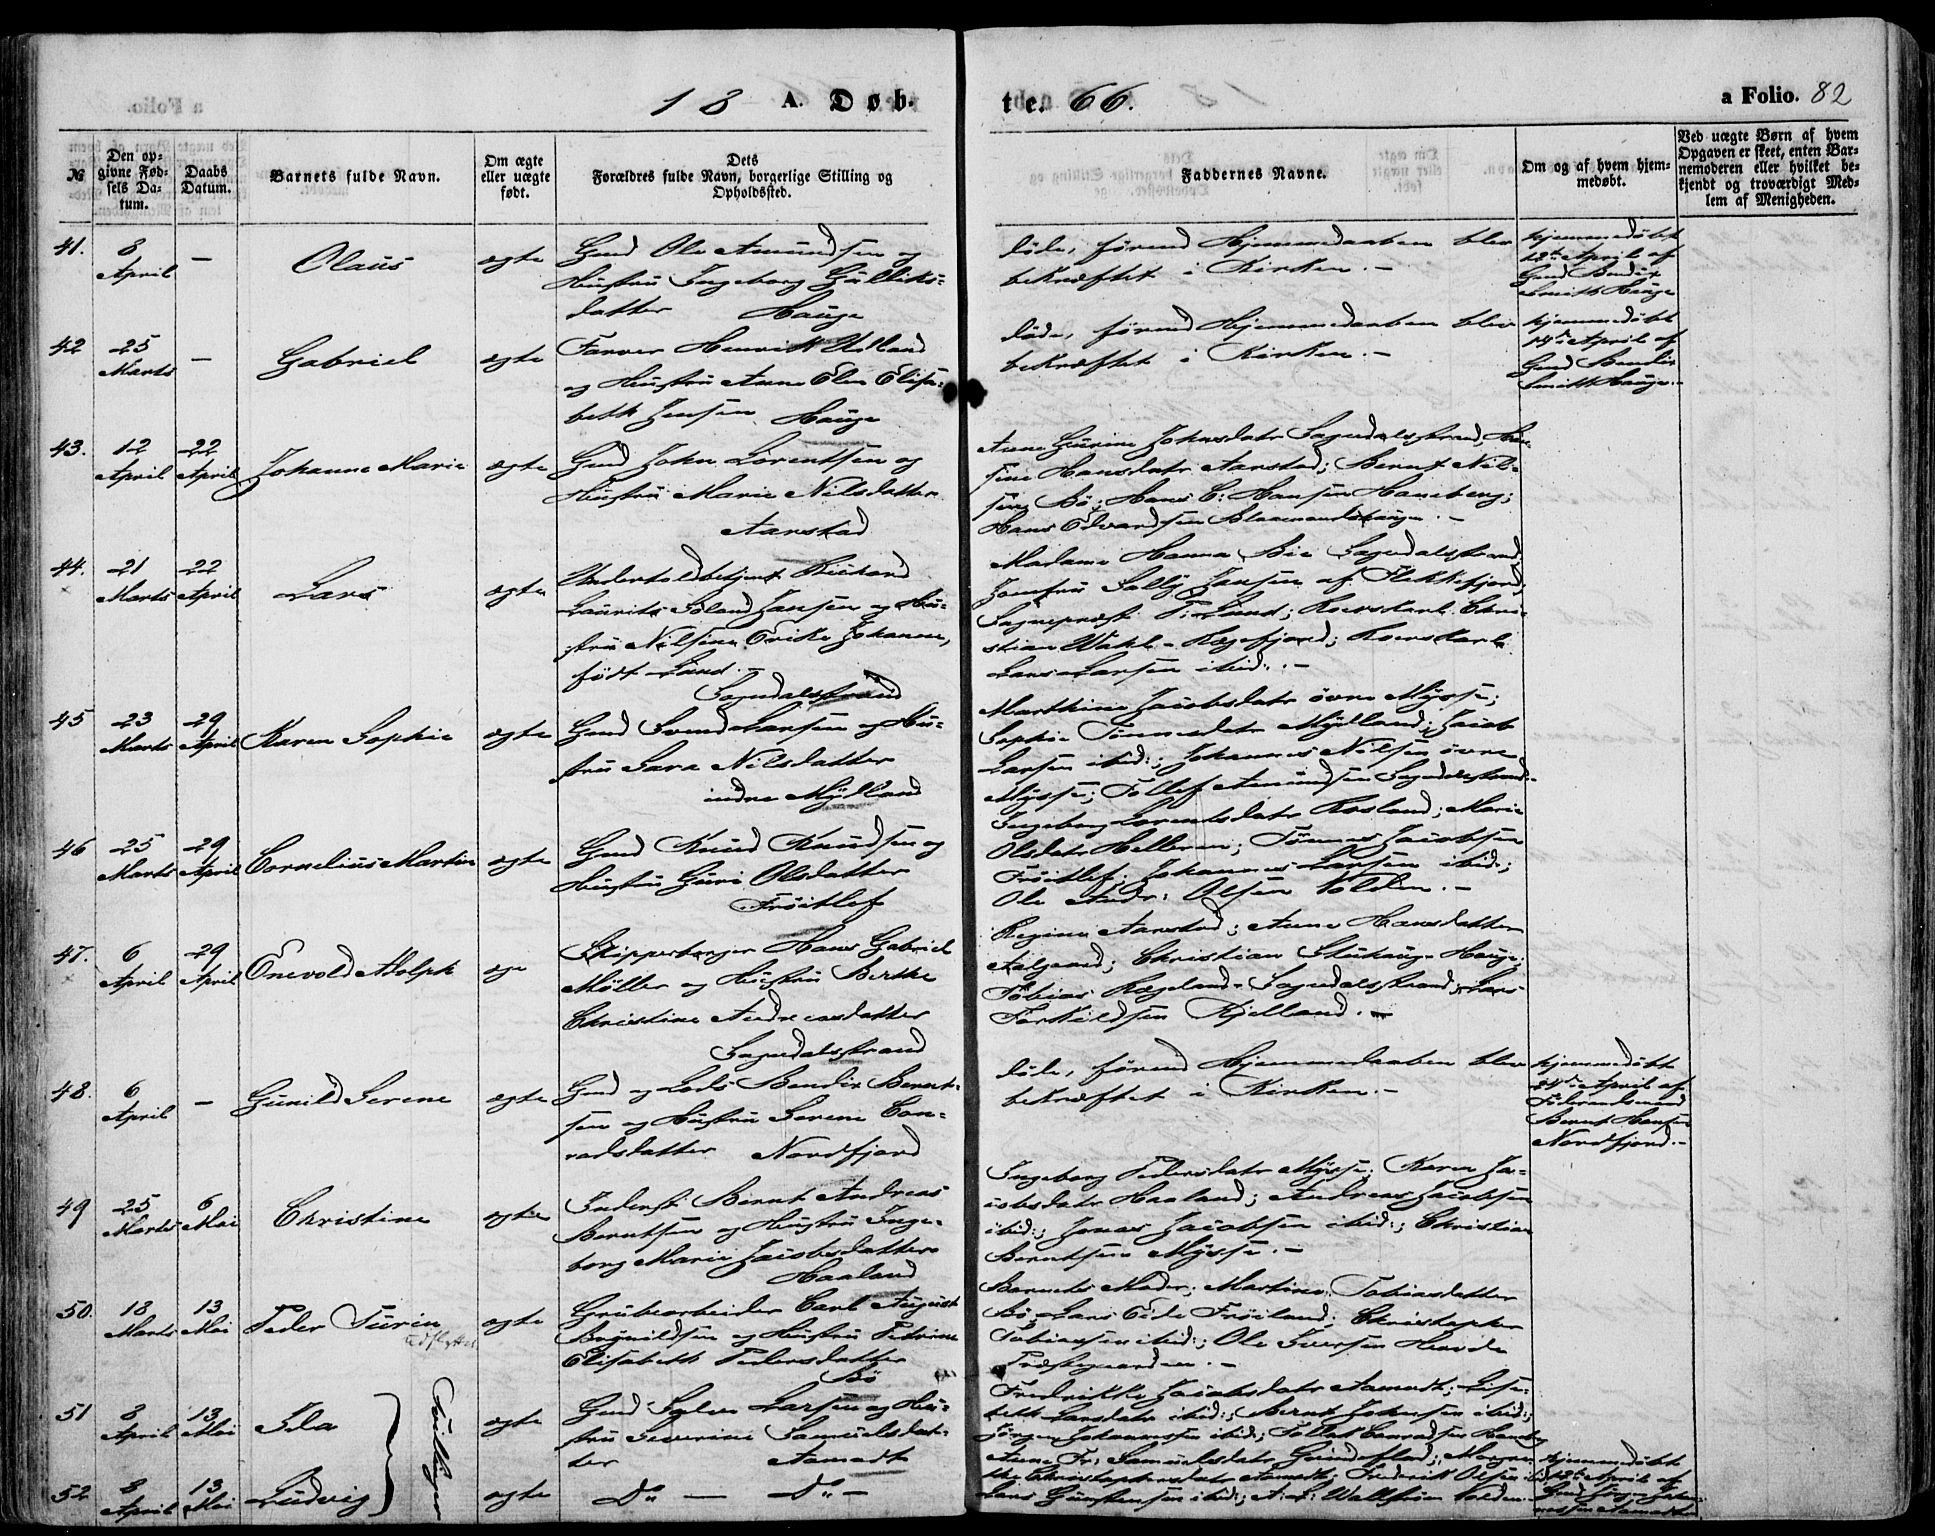 18 A. Døb-
te. 66.
a Folio. 82
№
Den op-
givne Fød-
sels Da-
tum.
Daabs
Datum.
Barnets fulde Navn.
Om ægte
eller uægte
født.
Dets
Forældres fulde Navn, borgerlige Stilling og
Opholdssted.
Faddernes Navne.
Om og af hvem hjem-
medøbt.
Ved uægte Børn af hvem
Opgaven er skeet, enten Bar-
nemoderen eller hvilket be-
kjendt og troværdigt Med-
lem af Menigheden.
41. 8
April
—
Olaus
ægte
Gmd Ole Amundsen og
Hustru Ingeborg Gulliks-
datter Hauge
døde, førend Hjemmedaaben blev
bekræftet i Kirken. —
hjemmedøbt
12te April af
Gmd Bendix
Smith Hauge
42 25
Marts
—
Gabriel
ægte
Farver Henrik Uelland
og Hustru Anne Elen Elisa-
beth Jensen Hauge
døde, førend Hjemmedaaben blev
bekræftet i Kirken. —
hjemmedøbt
April af
Gmd Bendix
Smith Hauge. —
43. 12
April
22
April
Johanne Marie
ægte
Gmd John Lorentsen og
Hustru Marie Nilsdatter
Aarstad
Anne Gurine Johnsdatr Sogndalstrand,
sine Hansdatr Aarstad; Bernt Nil-
sen Bö; Hans C: Hansen Haneberg;
Hans Edvardsen Blaamandshaugen. —
44. 21
Marts
22
April
Lars
ægte
Underholdbetjent Richard
Laurits Søland Jansen og Hu-
stru Nilsine Cecike Johanne,
født Lund. —
Sogndalstrand
Madame Hanna Bie Sogndalstrand,
Jomfru Sally Jansen af Flekkefjord;
Sogneprest T. Lund; Chri-
stian Wahl - Rægefjord;
Lars Larsen ibid:. —
45 23
Marts
29
April
Karen Sophie
ægte
Gmd Svend Larsen og Hu-
stru Sara Nilsdatter
indre Mydland
Marthine Jacobsdatr övre Mysse;
Sophie Tönnesdatr Mydland; Jacob
Larsen ibid:; Johannes Nilsen övre
Mysse; Tollef Amundsen Sogndalstrand. —
46 25
Marts
29
April
Cornelius Martin
ægte
Gmd Knud Knudsen og
Hustru Guri Olsdatter
Fröitlef
Ingeborg Lorentsdatr Rosland; Marie
Olsdatr Helleren; Tönnes Jacobsen
Fröitlef; Johannes Larsen ibid:;
Ole Andr: Olsen Volden. —
47. 6
April
29
April
Enevold Adolph
æge
Skippeborger Hans Gabriel
Møller og Hustru Berthe
Christine Andreasdatter
Sogndalstrand
Regine Aarstad; Anne Hansdatter
Aalgaard; Christian Hauge;
Tobias Rægeland - Sogndalstrand; Lars
Torkildsen Kjelland. —
48. 6
April
—
Gunild Serene
ægte
Gmd og Lods Bendix Bernt-
sen og Hustru Serene Con-
radsdatter Nordfjord
døde, førend Hjemmedaaben blev
bekræftet i Kirken. —
hjemmedøbt
April af
Föderaadsmand
Bernt Hansen
Nordfjord. —
49 25
Marts
6
Mai
Christine
ægte
Inderst Bernt Andreas
Berntsen og Hustru Inge-
borg Marie Jacobsdatter
Haaland
Ingeborg Pedersdatr Mysse; Karen Ja-
cobsdatr Haaland; Andreas Jacobsen
ibid:; Jonas Jacobsen ibid:; Christian
Berntsen Mysse. —
50. 18
Marts
13
Mai
Peder Turin
Udflyttet
ægte
Grubearbeider Carl August
Brynildsen og Hustru Petrine
Elisabeth Pedersdatter
Bö
Barnets Moder; Martine Tobiasdatter
Bö; Lars Eide Fröiland; Christopher
Tobiassen ibid:; Ole Iversen Hovde
Præstegaarden. —
51 8
April
13
Mai
Ida
Tvillinger
ægte
Gmd Salve Larsen og Hu-
stru Severine Samuelsdat-
ter Aamodt
Fredrikke Jacobsdatr Aamodt; Lise-
beth Larsdatr ibid:; Bernt Johnsen ibid:;
Jörgen Johannessen ibid:; Tollak Conradsen
52 8
April
13
Mai
Ludvig
ægte
Do — Do —
Anne Fr: Samuelsdatr Grindsland;
Christophersdatr Aamodt; Frederik Olsen ibid
Lars Gunstensen ibid:; A: L: Volden.
hjemmedøbt
12te April af
Gmd Jörgen Johan-
nessen Aamodt